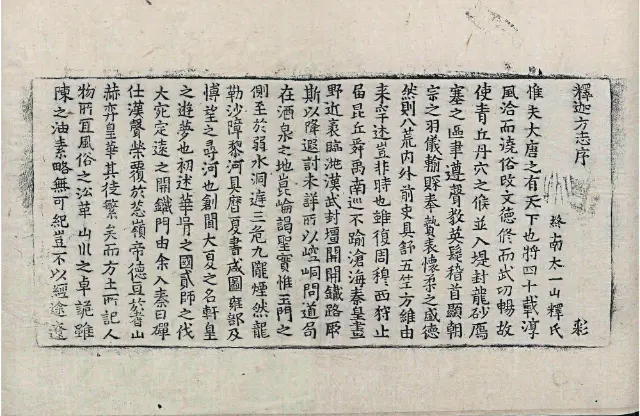 釋迦方志序
終南太一山釋氏 彩
惟夫大唐之有天下也將四十載淳
風洽而澆俗改文德修而武功暢故
使青丘丹穴之候並入堤封龍砂鴈
塞之區聿遵聲教英髦稽首顯朝
宗之羽儀輸賝奉贄表懷柔之盛德
然則八荒內外前史具舒五竺方維由
来罕述豈非時也雖復周穆西狩止
屆昆丘舜禹南巡不踰滄海秦皇畫
野近袤臨洮漢武封壇開開鐵路厥
斯以降遐討未詳所以崆峒問道局
在酒泉之地崑崘謁聖實惟玉門之
側至於弱水洞遊三危九隴煙然龍
勒沙障黎河具曆夏書咸圖雍部及
博望之尋河也創聞大夏之名軒皇
之遊夢也初述華胥之國貳師之伐
大宛定遠之開鐵門由余入秦日磾
仕漢聲榮覆於葱嶺帝德亘於耆山
赫弈皇華其徒繁矣而方土所記人
物所宜風俗之沿革山川之卓詭雖
陳之油素略無可紀豈不以經途遼